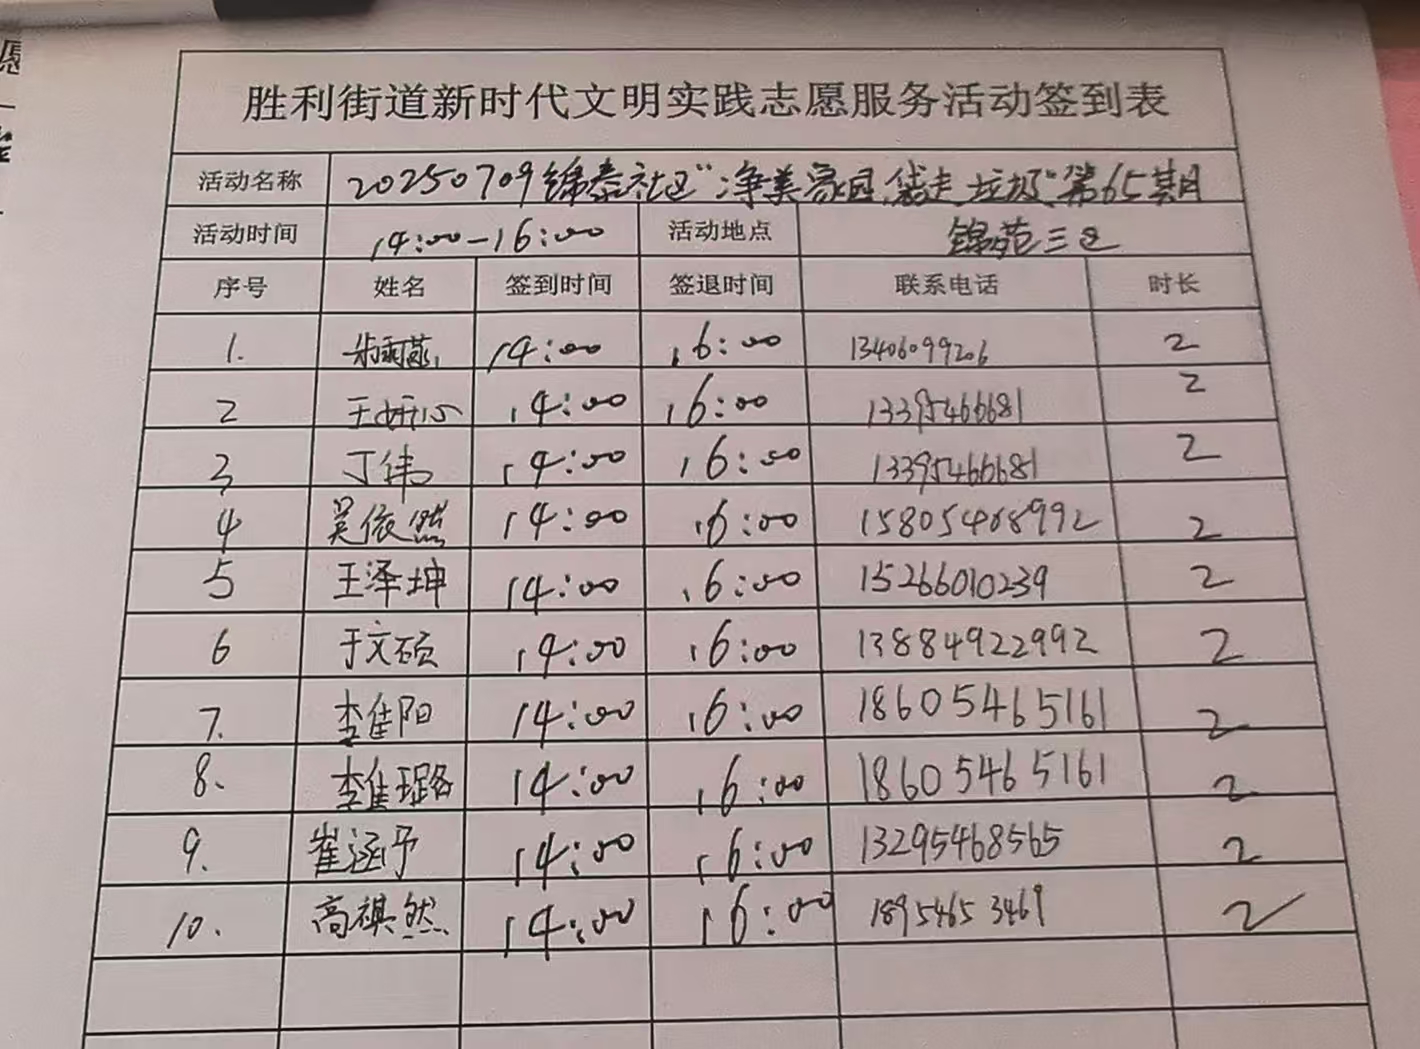 胜利街道新时代文明实践志愿服务活动签到表
活动名称 20250709锦泰社区“净美家园,袋走垃圾”第65期
活动时间 14:00-16:00 活动地点 锦苑三区
序号 姓名 签到时间 签退时间 联系电话 时长
1. 朱雨燕 14:00 16:00 13406099206 2
2 王妍心 14:00 16:00 13395466681 2
3 丁伟 14:00 16:00 13395466681 2
4 吴依然 14:00 16:00 15805468992 2
5 王泽坤 14:00 16:00 15266010239 2
6 于文硕 14:00 16:00 13884922992 2
7. 李佳阳 14:00 16:00 18605465161 2
8. 李佳璐 14:00 16:00 18605465161 2
9. 崔涵予 14:00 16:00 13295468565 2
10. 高祺然 14:00 16:00 18954653469 2